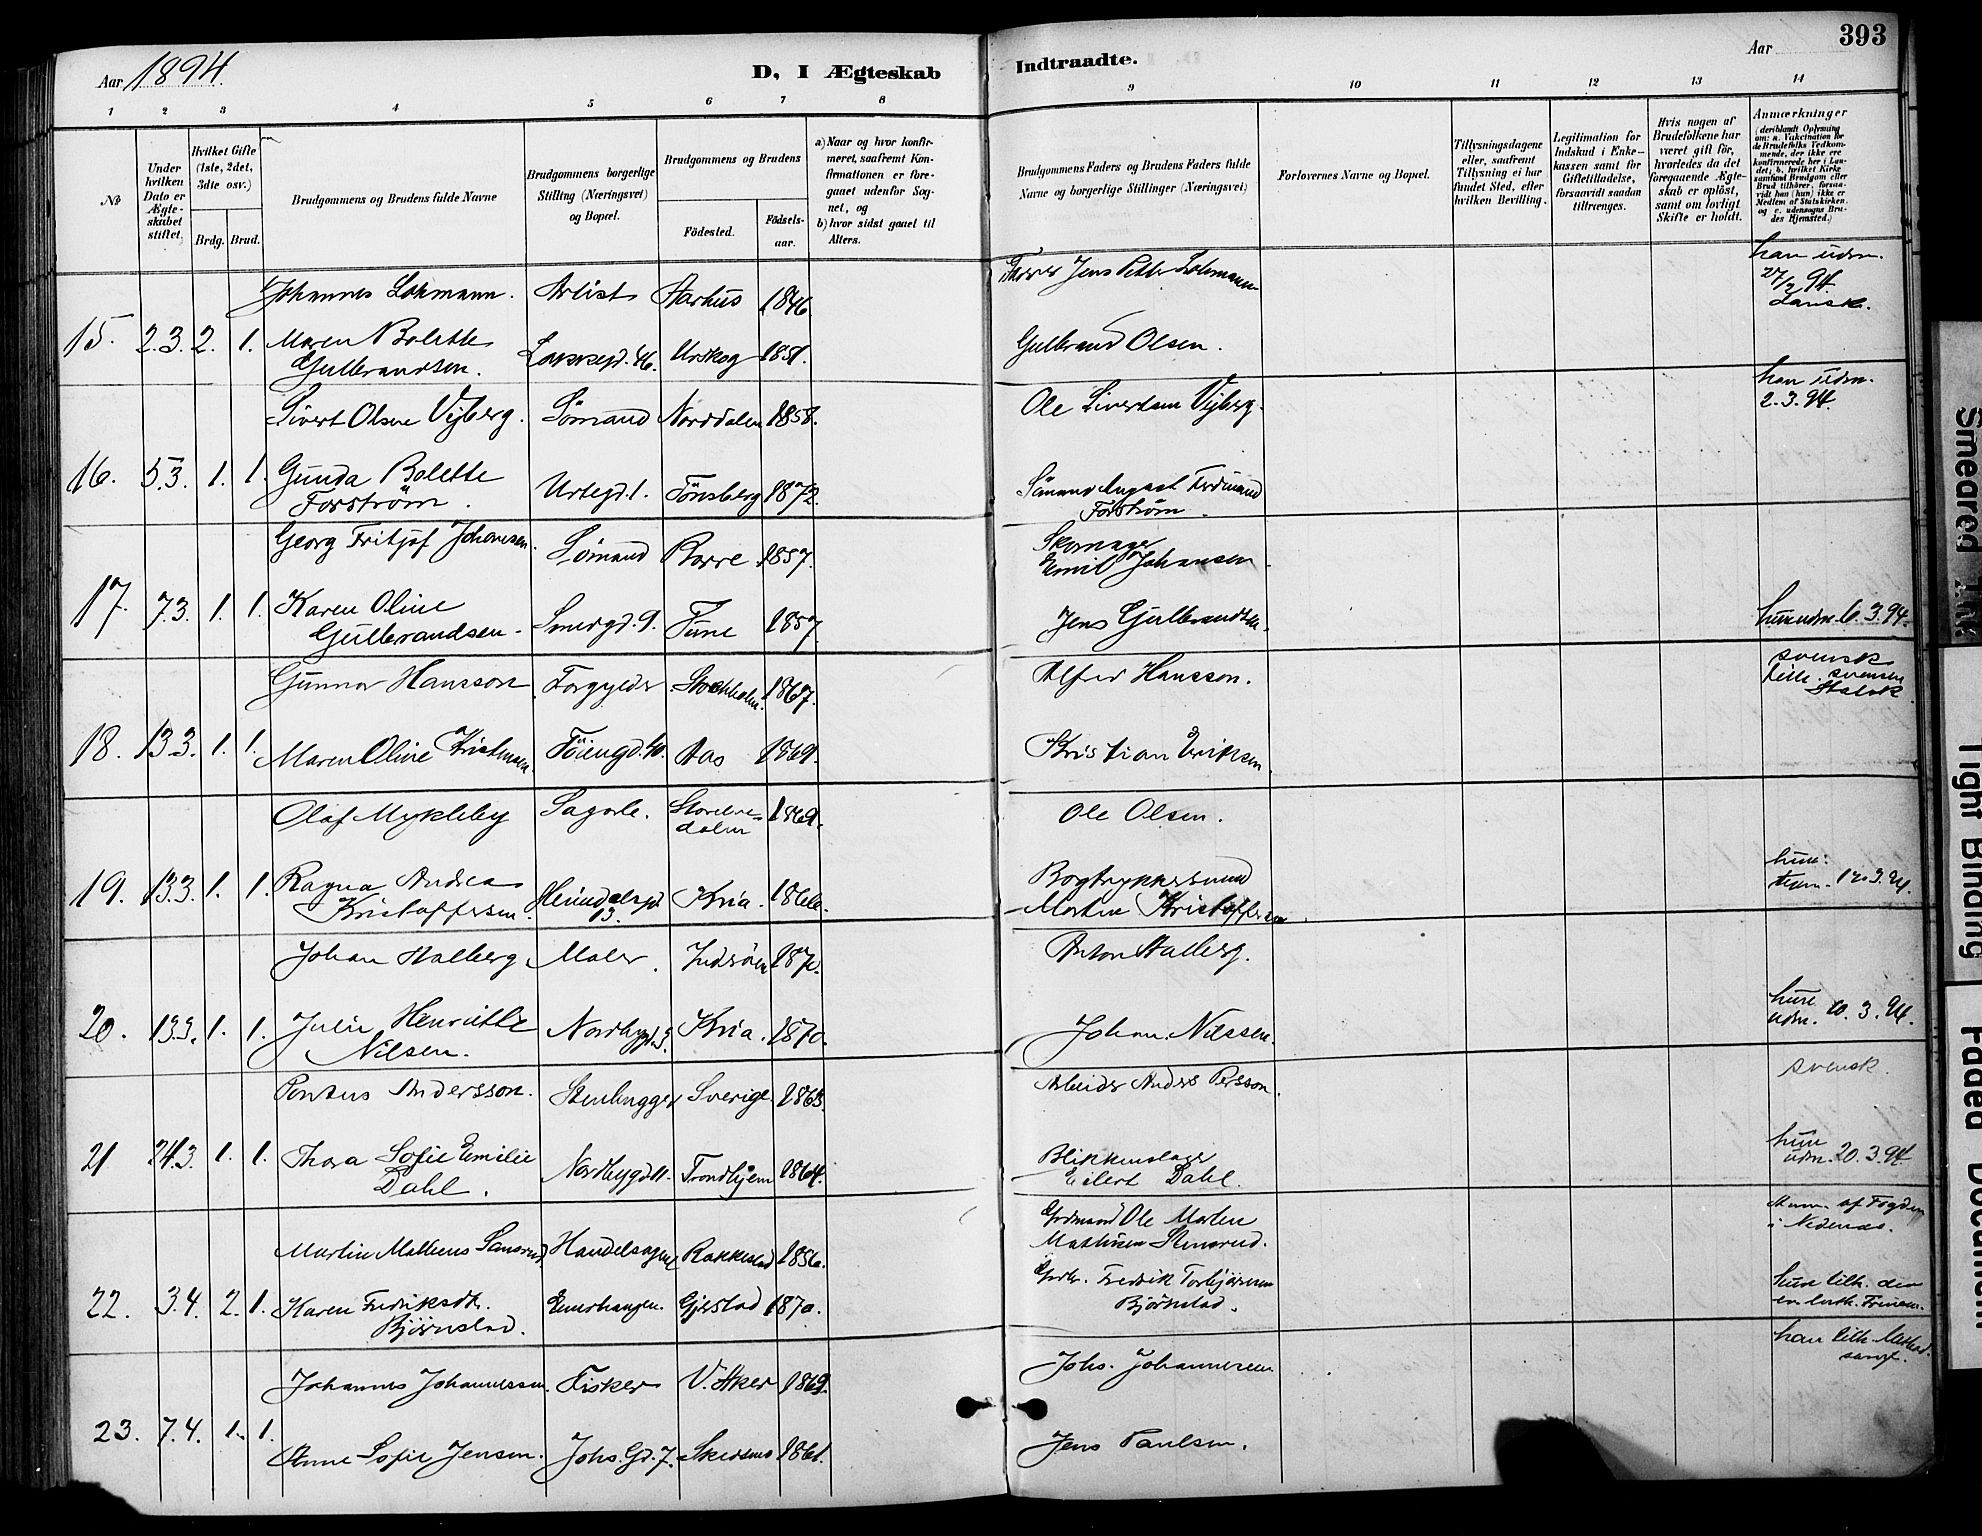 Aar 1894.
D, I Ægteskab
Indtraadte.
Aar
393
1 2 3 4 5 6 7 8 9 10 11 12 13 14
№
Under hvilken Dato er Ægteskabet stiftet.
Hvilket Gifte (1ste, 2det, 3die osv.)
Brdg. Brud.
Brudgommens og Brudens fulde Navne
Brudgommens borgerlige Stilling (Næringsvei) og Bopæl.
Brudgommens og Brudens
Födested.
Födsels-aar.
a) Naar og hvor konfirmeret, saafremt Konfirmationen er foregaaet udenfor Sognet, og
b) hvor sidst gaaet til Alters.
Brudgommens Faders og Brudens Faders fulde Navne og borgerlige Stillinger (Næringsvei)
Forlovernes Navne og Bopæl.
Tillysningsdagene eller, saafremt Tillysning ei har fundet Sted, efter hvilken Bevilling.
Legitimation for Indskud i Enkekassen samt for Giftetilladelse, forsaavidt saadan tiltrænges.
Hvis nogen af Brudefolkene har været gift før, hvorledes da det foregaaende Ægteskab er oplöst, samt om lovligt Skifte er holdt.
Anmærkninger (deriblandt Oplysning om: a. Vakcination for de Brudefolks Vedkommende, der ikke ere konfirmerede her i Landet; b. hvilket Kirkesamfund Brudgom eller Brud tilhører, forsaavidt han (hun) ikke er Medlem af Statskirken og c. udensogns Brudes Hjemsted.)
Johannes Lohmann. Artist Aarhus 1846. Jens Petter Lohmann han udm. 27/2 94. Dansk.
15. 2.3. 2. 1. Maren Bolette Gulbrandsen. 46. Urskog 1851. Gulbrand Olsen.
Sivert Olsen Vijberg. Sømand Norddalen 1858. Ole Sivertsen Vijberg. han udm. 2.3.94.
16. 5.3. 1. 1. Gunda Bolette Forstrøm. Urtegd. 1. Tönsberg 1872. Sömand August Ferdinand Forstrøm.
Georg Fritjof Johansen. Sømand Borre 1857. Skomager Emil Johansen
17. 7.3. 1. 1. Karen Oline Gulbrandsen. Smedgd. 9. Tune 1857 Jens Gulbrandsen. hun udm. 6.3.94.
Gunnar Hansson Forgylder Stockholm. 1867. Alfred Hansson. svensk
18. 13.3. 1. 1. Maren Oline Kristiansen. Töiengd. 40. Aas 1869. Kristian Eriksen.
Olaf Mykleby Sagarb. Storelvedalen 1869. Ole Olsen.
19. 13.3. 1. 1. Ragna Andrea Kristoffersen. Heimdalsgd 13. Kria. 1866. Bogtrykkersvend Morten Kristoffersen hun
Johan Halberg Maler. Inderöen 187 Anton Halberg.
20. 13.3. 1. 1. Julie Henriette Nilsen. Nordbygd. 3. Kria. 1870. Johan Nilssen. hun udm. 10.3.94.
Pontus Andersson. Stenhugger Sverige 1863. Arbeider Anders Persson. svensk.
21 24.3. 1. 1. Thora Sofie Emilie Dahl. Nordbygd 11. Trondhjem 1864. Blikkenslager Eilert Dahl. hun udm. 20.3.94
Martin Matheus Handelsagent Rakkestad 1856. Gdmand Ole Martin Mathisen Stensrud. af Fogden i Nedenæs.
22. 3.4. 2. 1. Karen Fredriksdt. Bjørnstad. Enerhaugen. Gjerstad 1870. Fredrik Torbjörnsen Bjørnstad. hun tilh. den ev. luth. Frimen.
Johannes Johannessen. Fisker V. Aker 1869. Johs. Johannessen han tilh.
23. 7.4. 1. 1. Anne Sofie Jensen. Johs. Gd. 7. Skedsmo 1861. Jens Paulsen.
Smeared Ink
Tight Binding
Faded Document